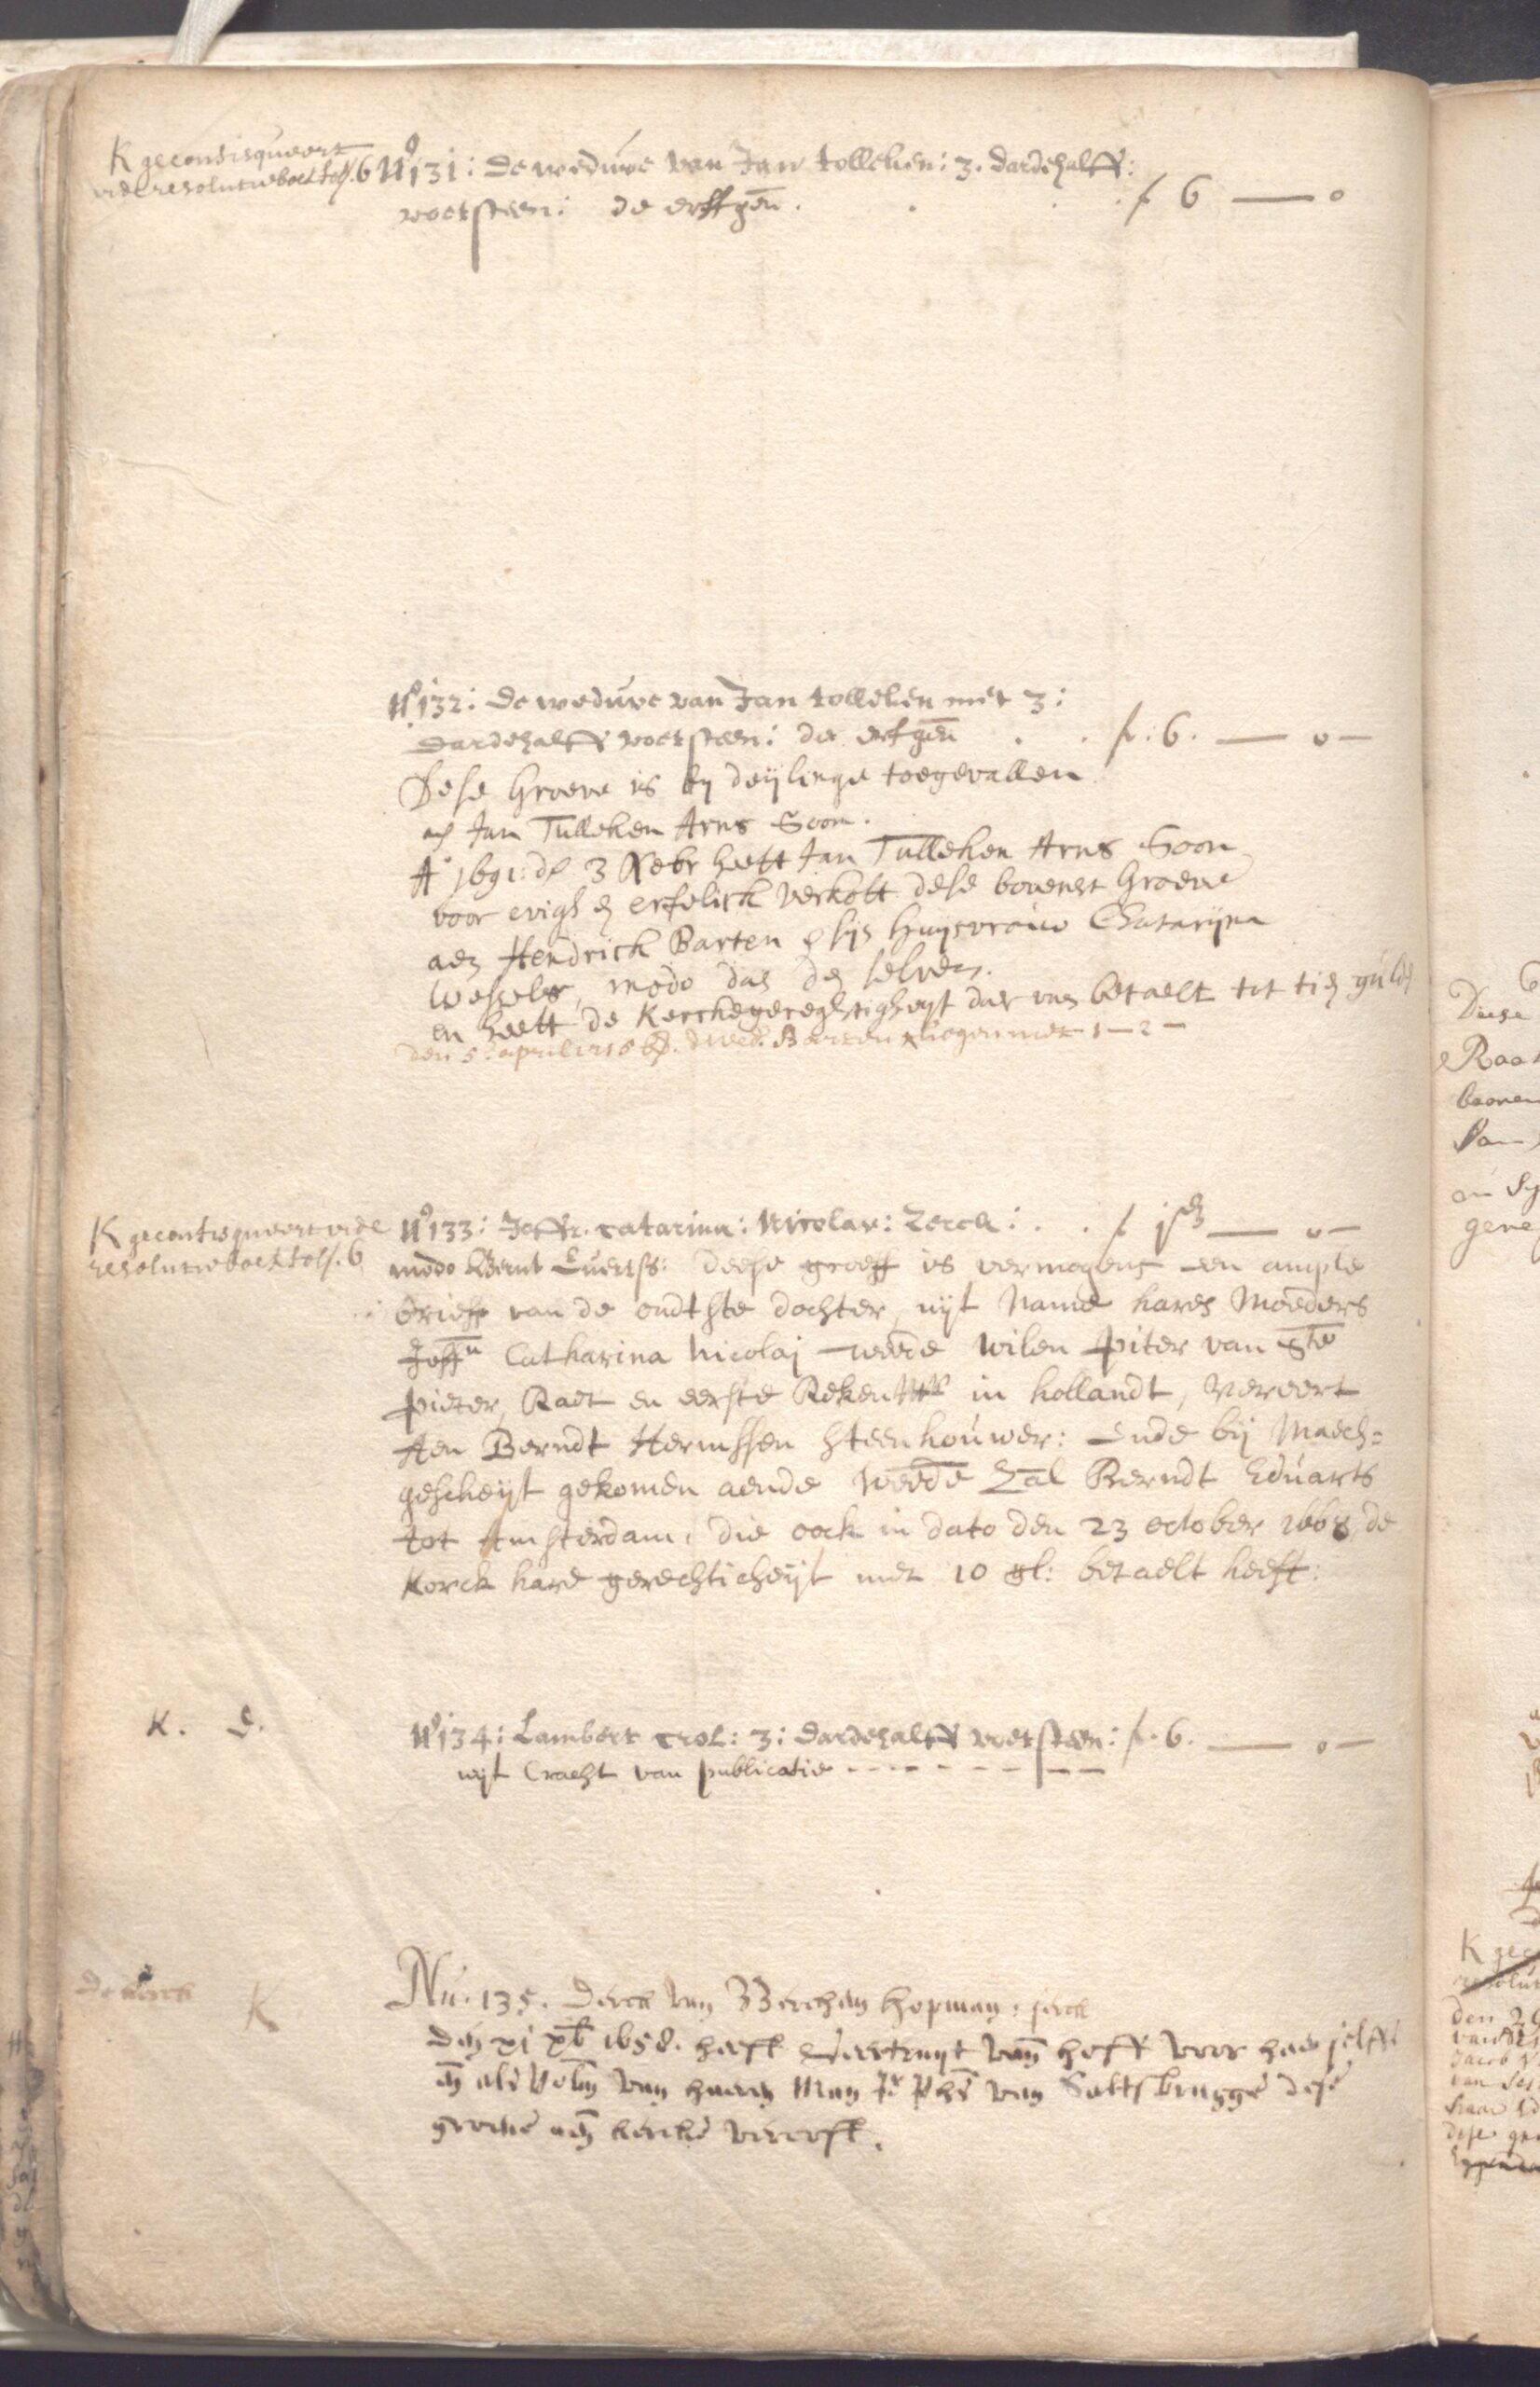 K geconfisqueert
vide resolutieboek fol. 6
N° 131: de weduwe van Jan tolleken: 3. dardehalff:
voetsteen: de erffgen̄ . . . f 6 — 0
N° 132: de weduwe van Jan tolleken met 3:
dardehalff voetsteen: de erfgen̄ . . f: 6. — 0 —
Dese Groeve is by deijlinge toegevallen
Jan Tulleken Arns Soon.
A° 1691: 3 heeft Jan Tulleken Arns Soon
voor evigh erfelick verkoft dese bovenst Groeve
aen Hendrick Barten sijs huijsvrouw Chatarijna
Wessels, modo
en heeft de Kerckegereghtigheyt dar van betaelt tot tien guld
den 5 april d'wed. Barten 1-2-
K geconfisqueert vide
resolutieboek fol. 6
N° 133: Joffr. catarina: Nicolai: Zerck: . . f —— 0 —
modo Bernt Evertss: deese groeff is vermogens een ample
brieff van de oudtste dochter, uijt Name hares Moeders
Joffr Catharina Nicolaj weede wilen Piter van Ste
Pieter, Raet en eerste Rekenmr in hollandt, vereert
Aen Berndt Hermssen Steenhouwer: Ende bij Maech=
gescheijt gekomen aende weede Zal Berndt Eduarts
tot Amsterdam, die oock in dato den 23 october 1668 de
Kerck hare gerechticheijt met 10 gl: betaelt heeft:
K. E.
N° 134: Lambert crol: 3: dardehalff voetsteen: f. 6. — 0 —
uijt Cracht van publicatie - - - - - - -
de kerck K
Nu. 135. Derck van Berchen hopman: serck
Den xi xb 1658. heeft Geertruijt van hoff voor haer selff
en als van haeren Man van Saltsbrugge dese
groeve aen kercke vereert.